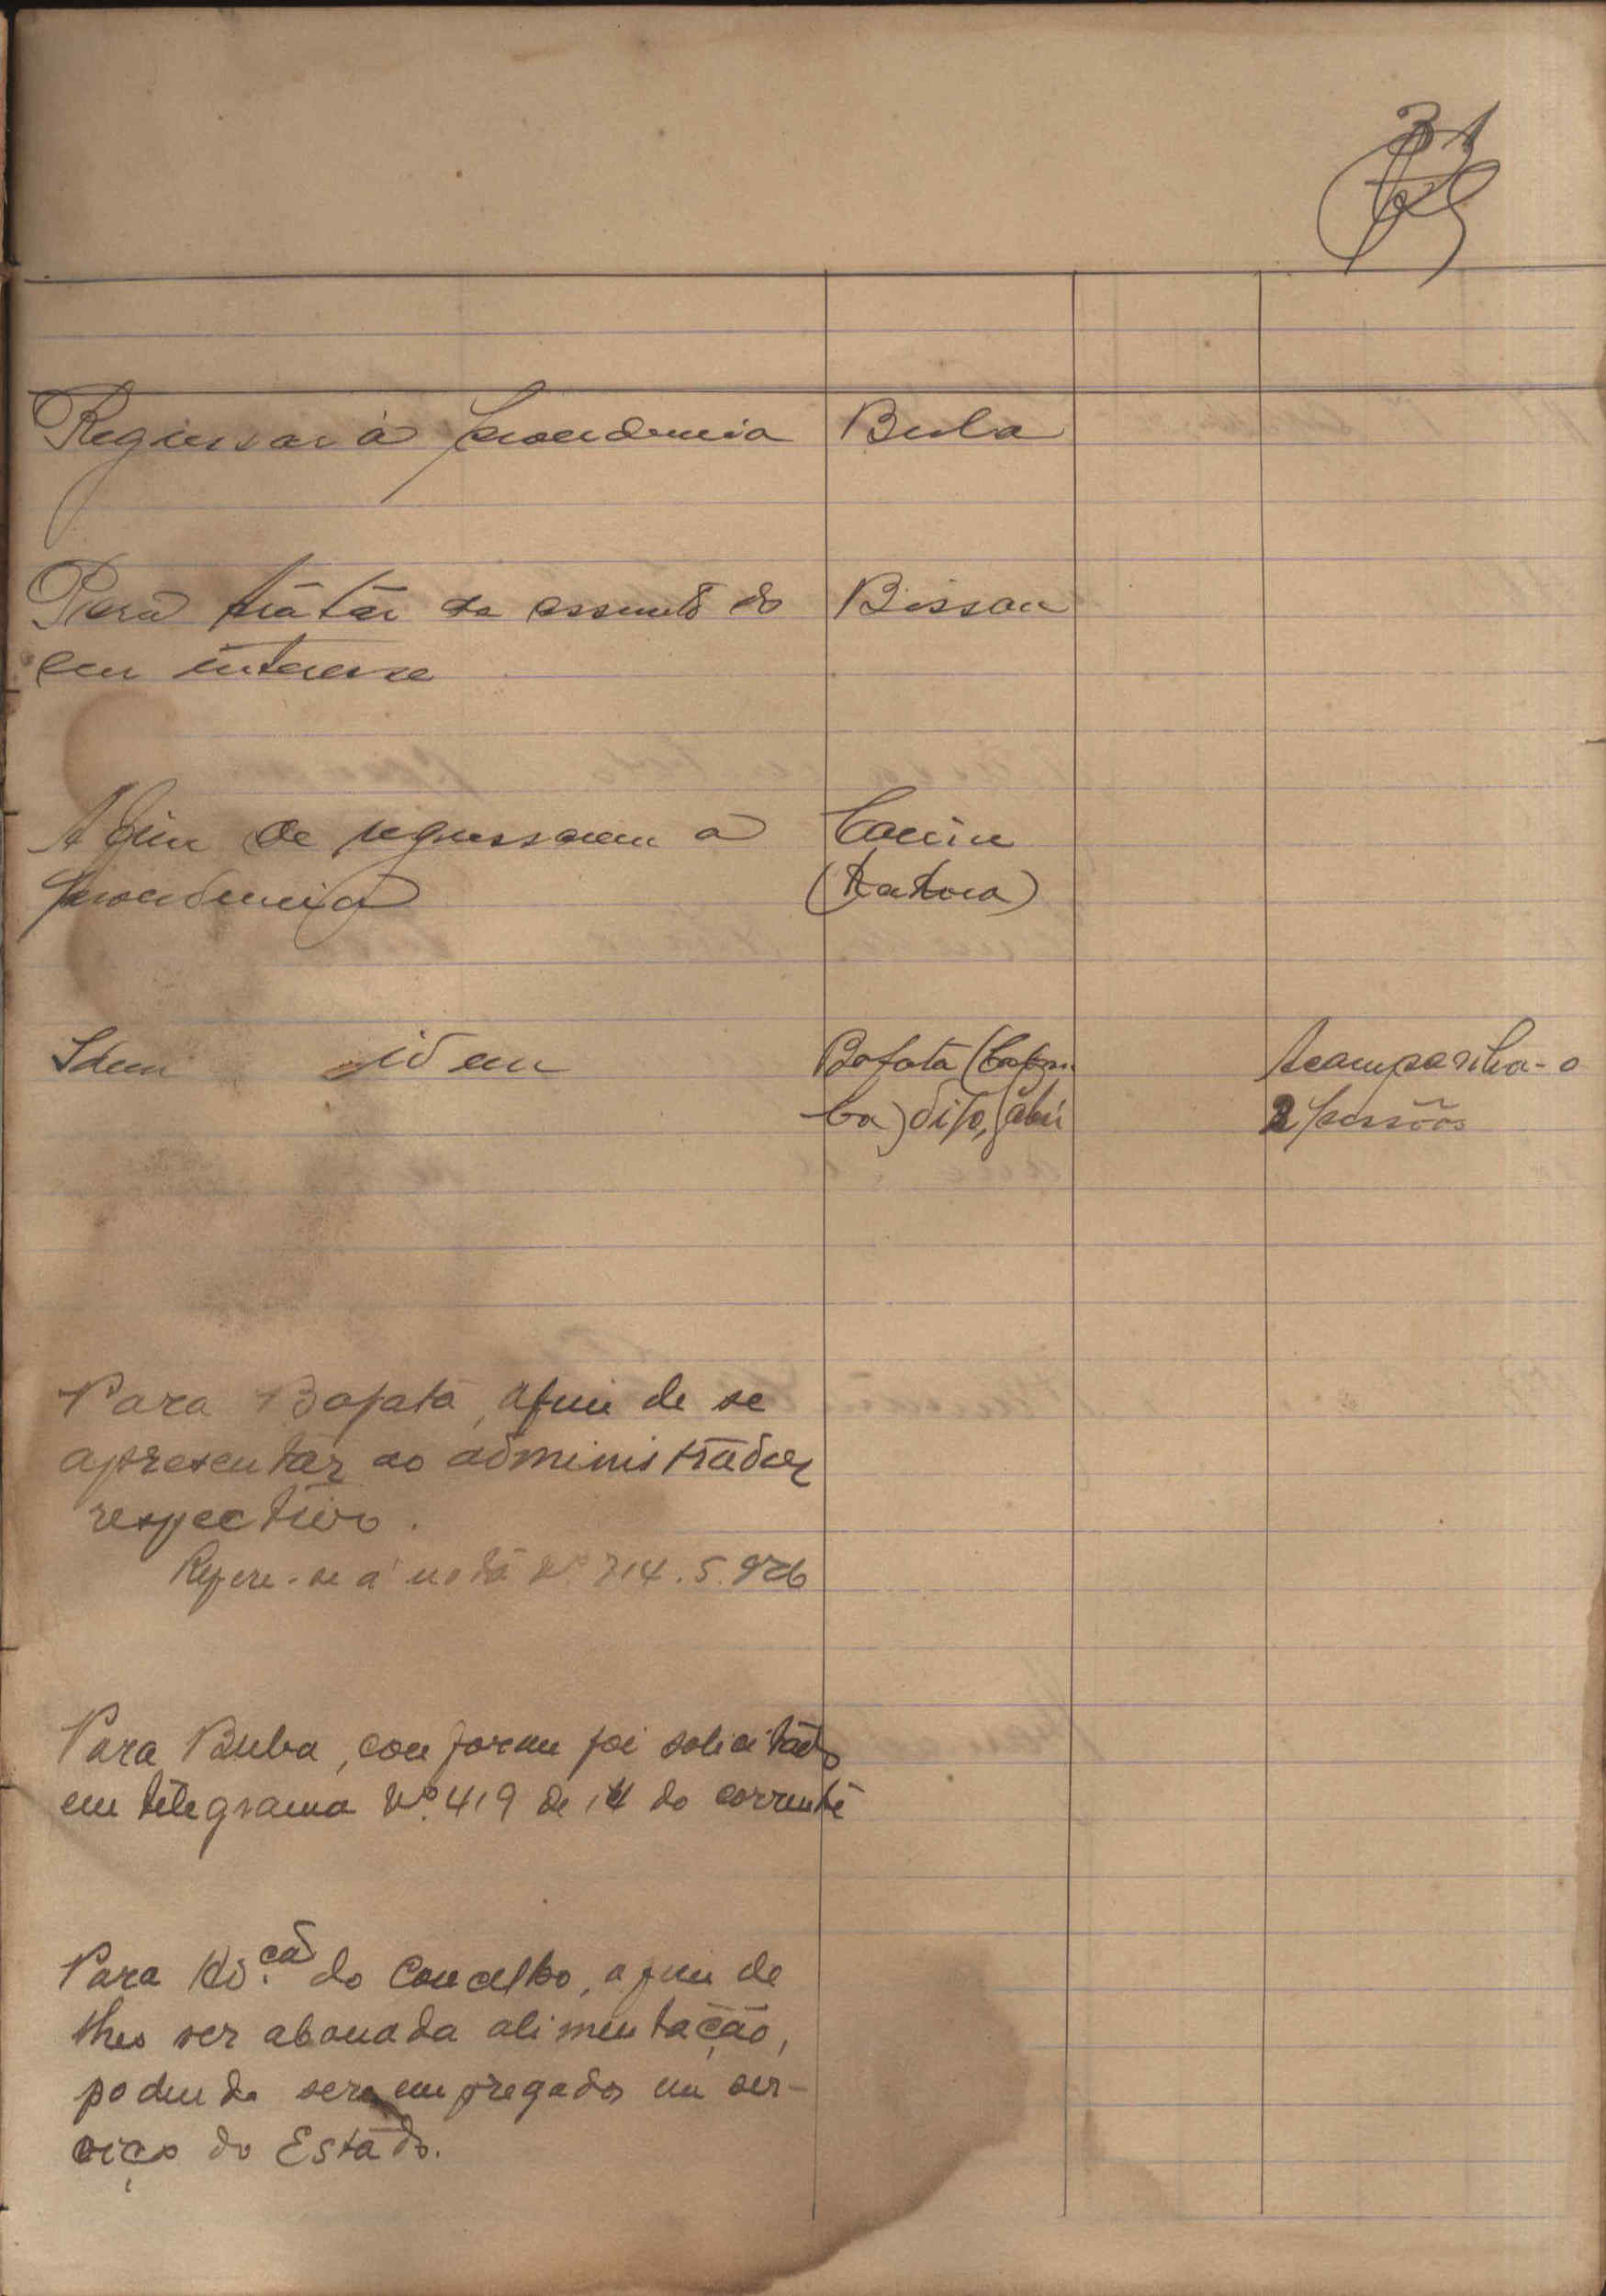 31
Regressar á procedencia Bula
Para tratar de assunto do Bissau
seu interesse
Afim de regressarem á
procedencia
Idem idem Bafatá Acompanha-o
ba) dito, Gabú 2 pessoas
Para Bafatá, afim de se
apresentar ao administrador
respectivo.
Refere-se á nota Nº 714.5.926
Para Buba, conforme foi solicitado
em telegrama Nº. 419 de 14 do corrente
Para Ad.ção do Concelho, afim de
lhes ser abonada alimentação,
podendo ser empregados em ser-
viço do Estado.